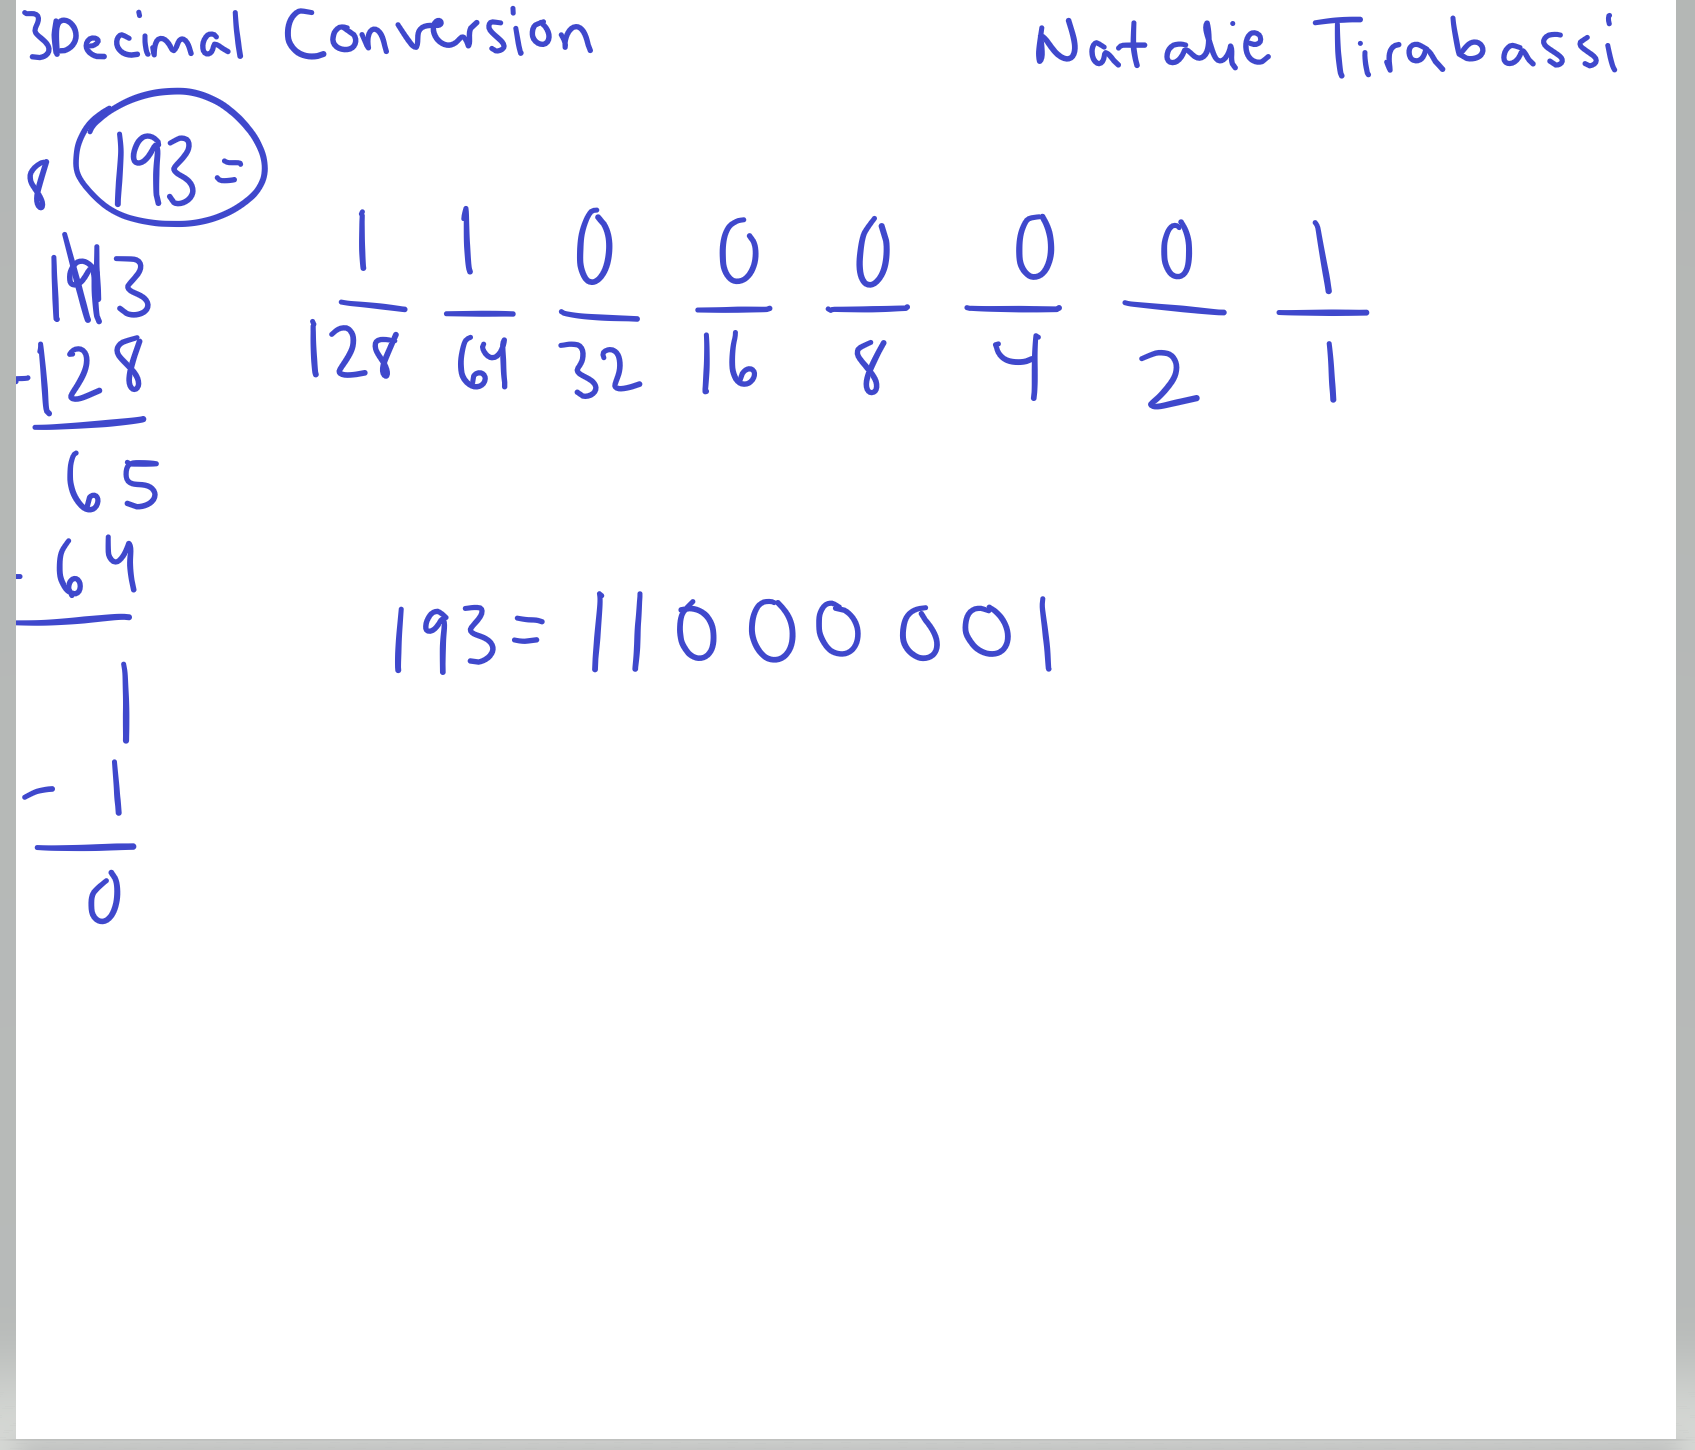 3Decimal Conversion Natalie Tirabassi
193=
8
193
-128
65
- 64
1
- 1
0
1 1 0 0 0 0 0 1
128 64 32 16 8 4 2 1
193= 11000001